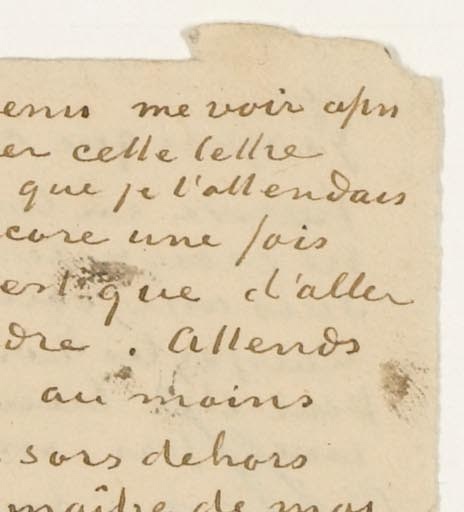 enus me voir apn
er cette lettre
que je t'attendais
core une fois
est que d'aller
dre . Attends
au moins
sors dehors
maître de moi